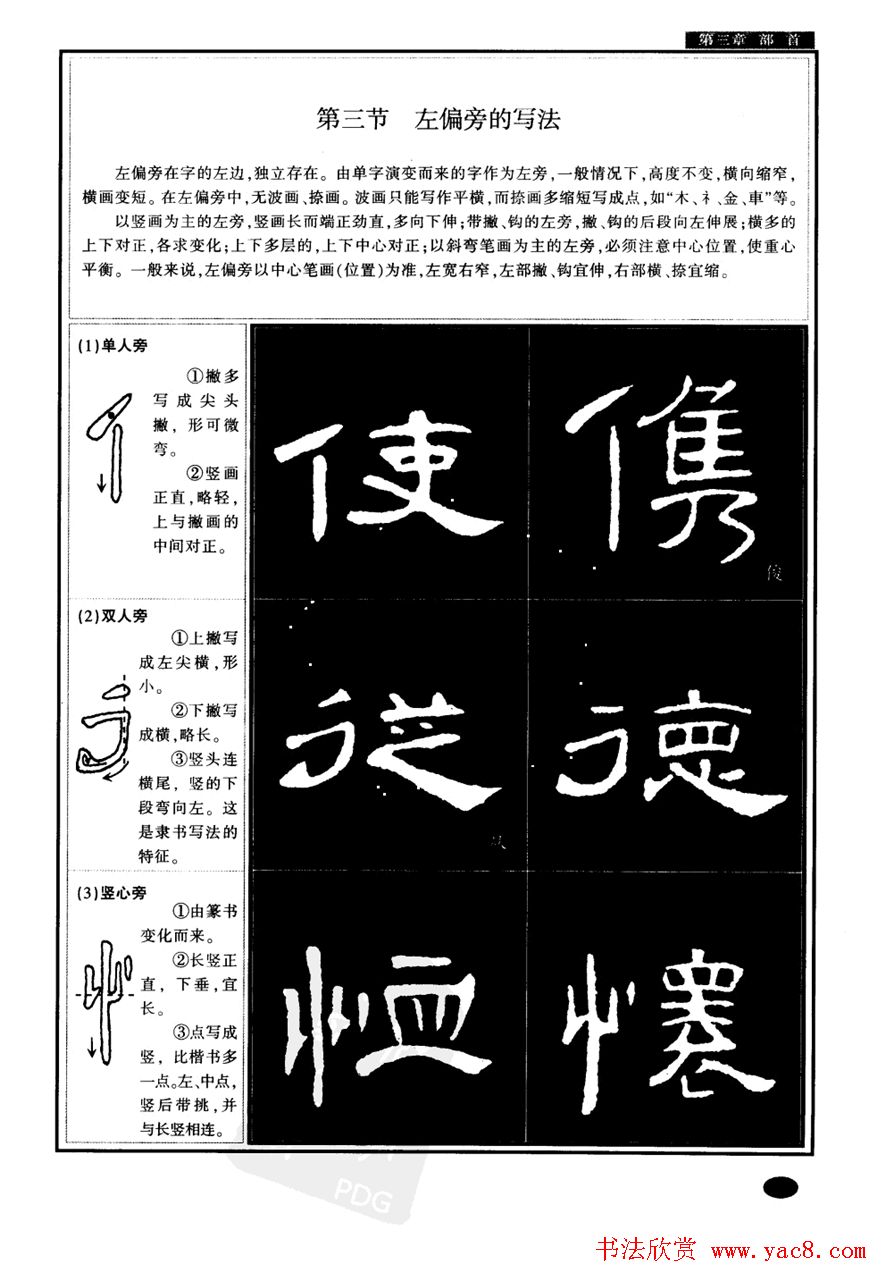 第三章 部 首
第三节 左偏旁的写法
左偏旁在字的左边,独立存在。由单字演变而来的字作为左旁,一般情况下,高度不变,横向缩窄,
横画变短。在左偏旁中,无波画、捺画。波画只能写作平横,而捺画多缩短写成点,如“木、礻、金、車”等。
以竖画为主的左旁,竖画长而端正劲直,多向下伸;带撇、钩的左旁,撇、钩的后段向左伸展;横多的
上下对正,各求变化;上下多层的,上下中心对正;以斜弯笔画为主的左旁,必须注意中心位置,使重心
平衡。一般来说,左偏旁以中心笔画(位置)为准,左宽右窄,左部撇、钩宜伸,右部横、捺宜缩。
(1)单人旁
①撇多
写成尖头
撇,形可微
弯。
②竖画
正直,略轻,
上与撇画的
中间对正。
使 儁
俊
(2)双人旁
①上撇写
成左尖横,形
小。
②下撇写
成横,略长。
③竖头连
横尾,竖的下
段弯向左。这
是隶书写法的
特征。
從 德
从
(3)竖心旁
①由篆书
变化而来。
②长竖正
直,下垂,宜
长。
③点写成
竖,比楷书多
一点。左、中点,
竖后带挑,并
与长竖相连。
恤 懷
PDG
书法欣赏 www.yac8.com